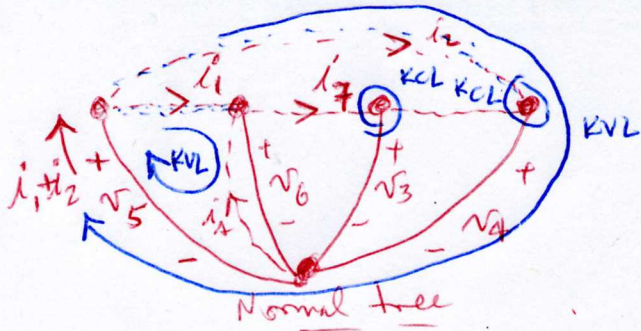 i2
i1
i7
KCL KCL
KVL
KVL
i1+i2
+
v5
-
+
v6
-
+
v3
-
+
v4
-
Normal tree